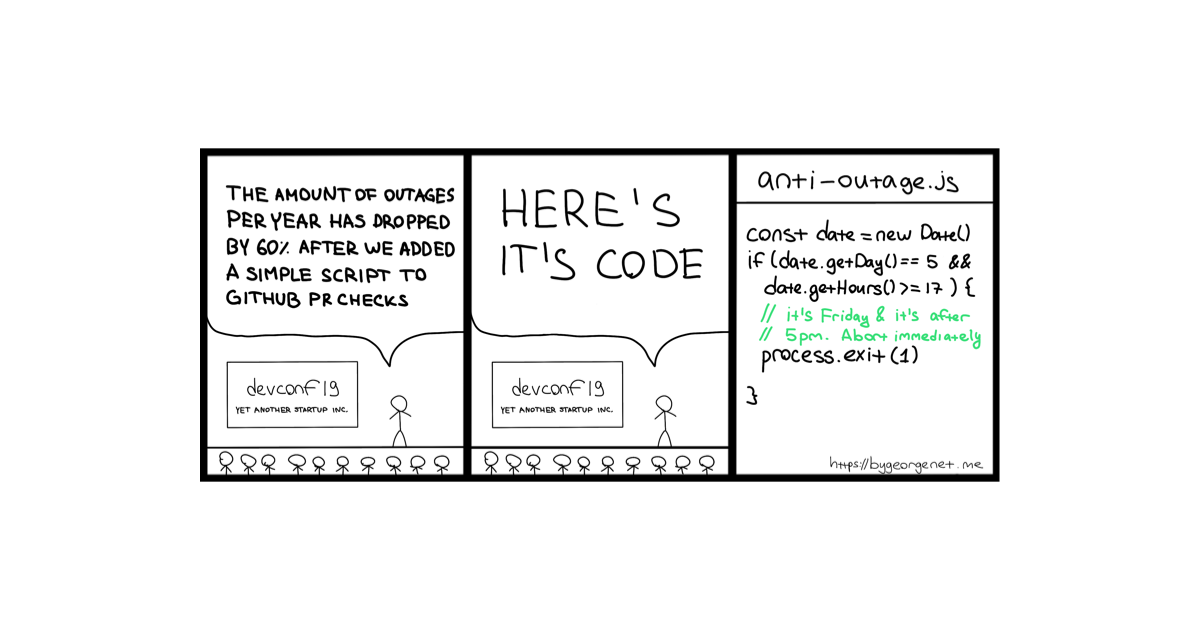 THE AMOUNT OF OUTAGES
PER YEAR HAS DROPPED
BY 60% AFTER WE ADDED
A SIMPLE SCRIPT TO
GITHUB PR CHECKS
devconf19
YET ANOTHER STARTUP INC.
HERE'S
IT'S CODE
devconf19
YET ANOTHER STARTUP INC.
anti-outage.js
const date = new Date()
if (date.getDay() == 5 &&
date.getHours() >= 17 ) {
// it's Friday & it's after
// 5pm. Abort immediately
process.exit(1)
}
https://bygeorgenet.me